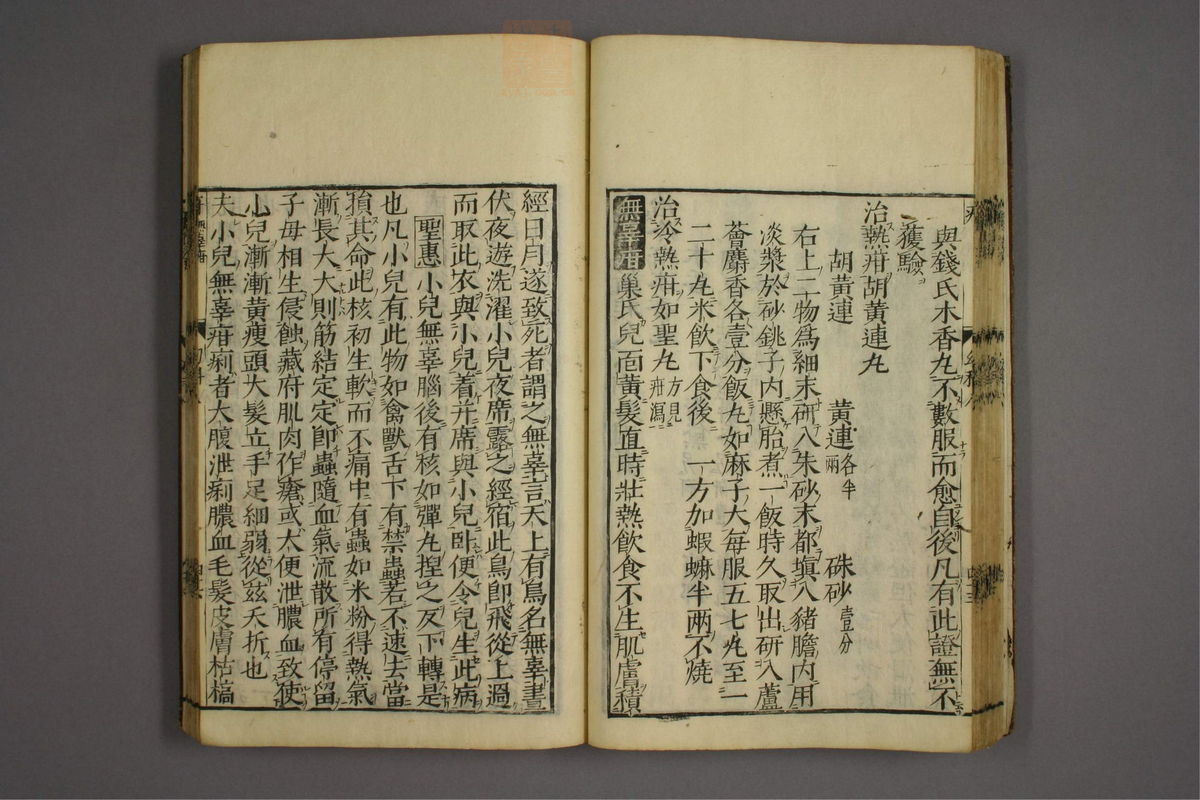 與錢氏木香丸不數服而愈自後凡有此證無不
獲驗
治熱疳胡黃連丸
胡黃連　黃連各半兩　硃砂壹分
右上二物爲細末研入朱砂末都塡入豬膽內用
淡漿於砂銚子內懸胎煮一飯時久取出研入蘆
薈麝香各壹分飯丸如麻子大每服五七丸至一
二十丸米飲下食後　一方加蝦蟆半兩不燒
治冷熱疳如聖丸方見疳瀉
無辜疳巢氏兒面黃髮直時壯熱飲食不生肌膚積
經日月遂致死者謂之無辜言天上有鳥名無辜晝
伏夜遊洗濯小兒夜席露之經宿此鳥即飛從上過
而取此衣與小兒着并席與小兒臥便令兒生此病
聖惠小兒無辜腦後有核如彈丸捏之反下轉是
也凡小兒有此物如禽獸舌下有禁蟲若不速去當
損其命此核初生軟而不痛中有蟲如米粉得熱氣
漸長大大則筋結定定即蟲隨血氣流散所有停留
子母相生侵蝕藏府肌肉作瘡或大便泄膿血致使
小兒漸漸黃瘦頭大髮立手足細弱從玆夭折也
夫小兒無辜疳痢者大腹泄痢膿血毛髮皮膚枯槁